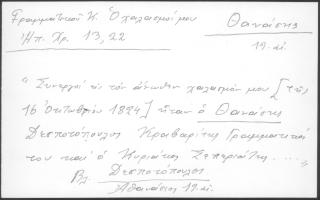 Γραμματικού Κ. Ο χαλασμός μου
Ηπ. Χρ. 13, 22
Θανάσης
19. αι.
"Συνεργοί εις τον άνωθεν χαλασμόν μου [της
16 Οκτωβρίου 1824] ήταν ο Θανάσης
Δεσποτόπουλος Κραβαρίτης Γραμματικός
του και ο Κυριάκος ...."
Βλ Δεσποτόπουλος
Αθανάσιος 19. αι.